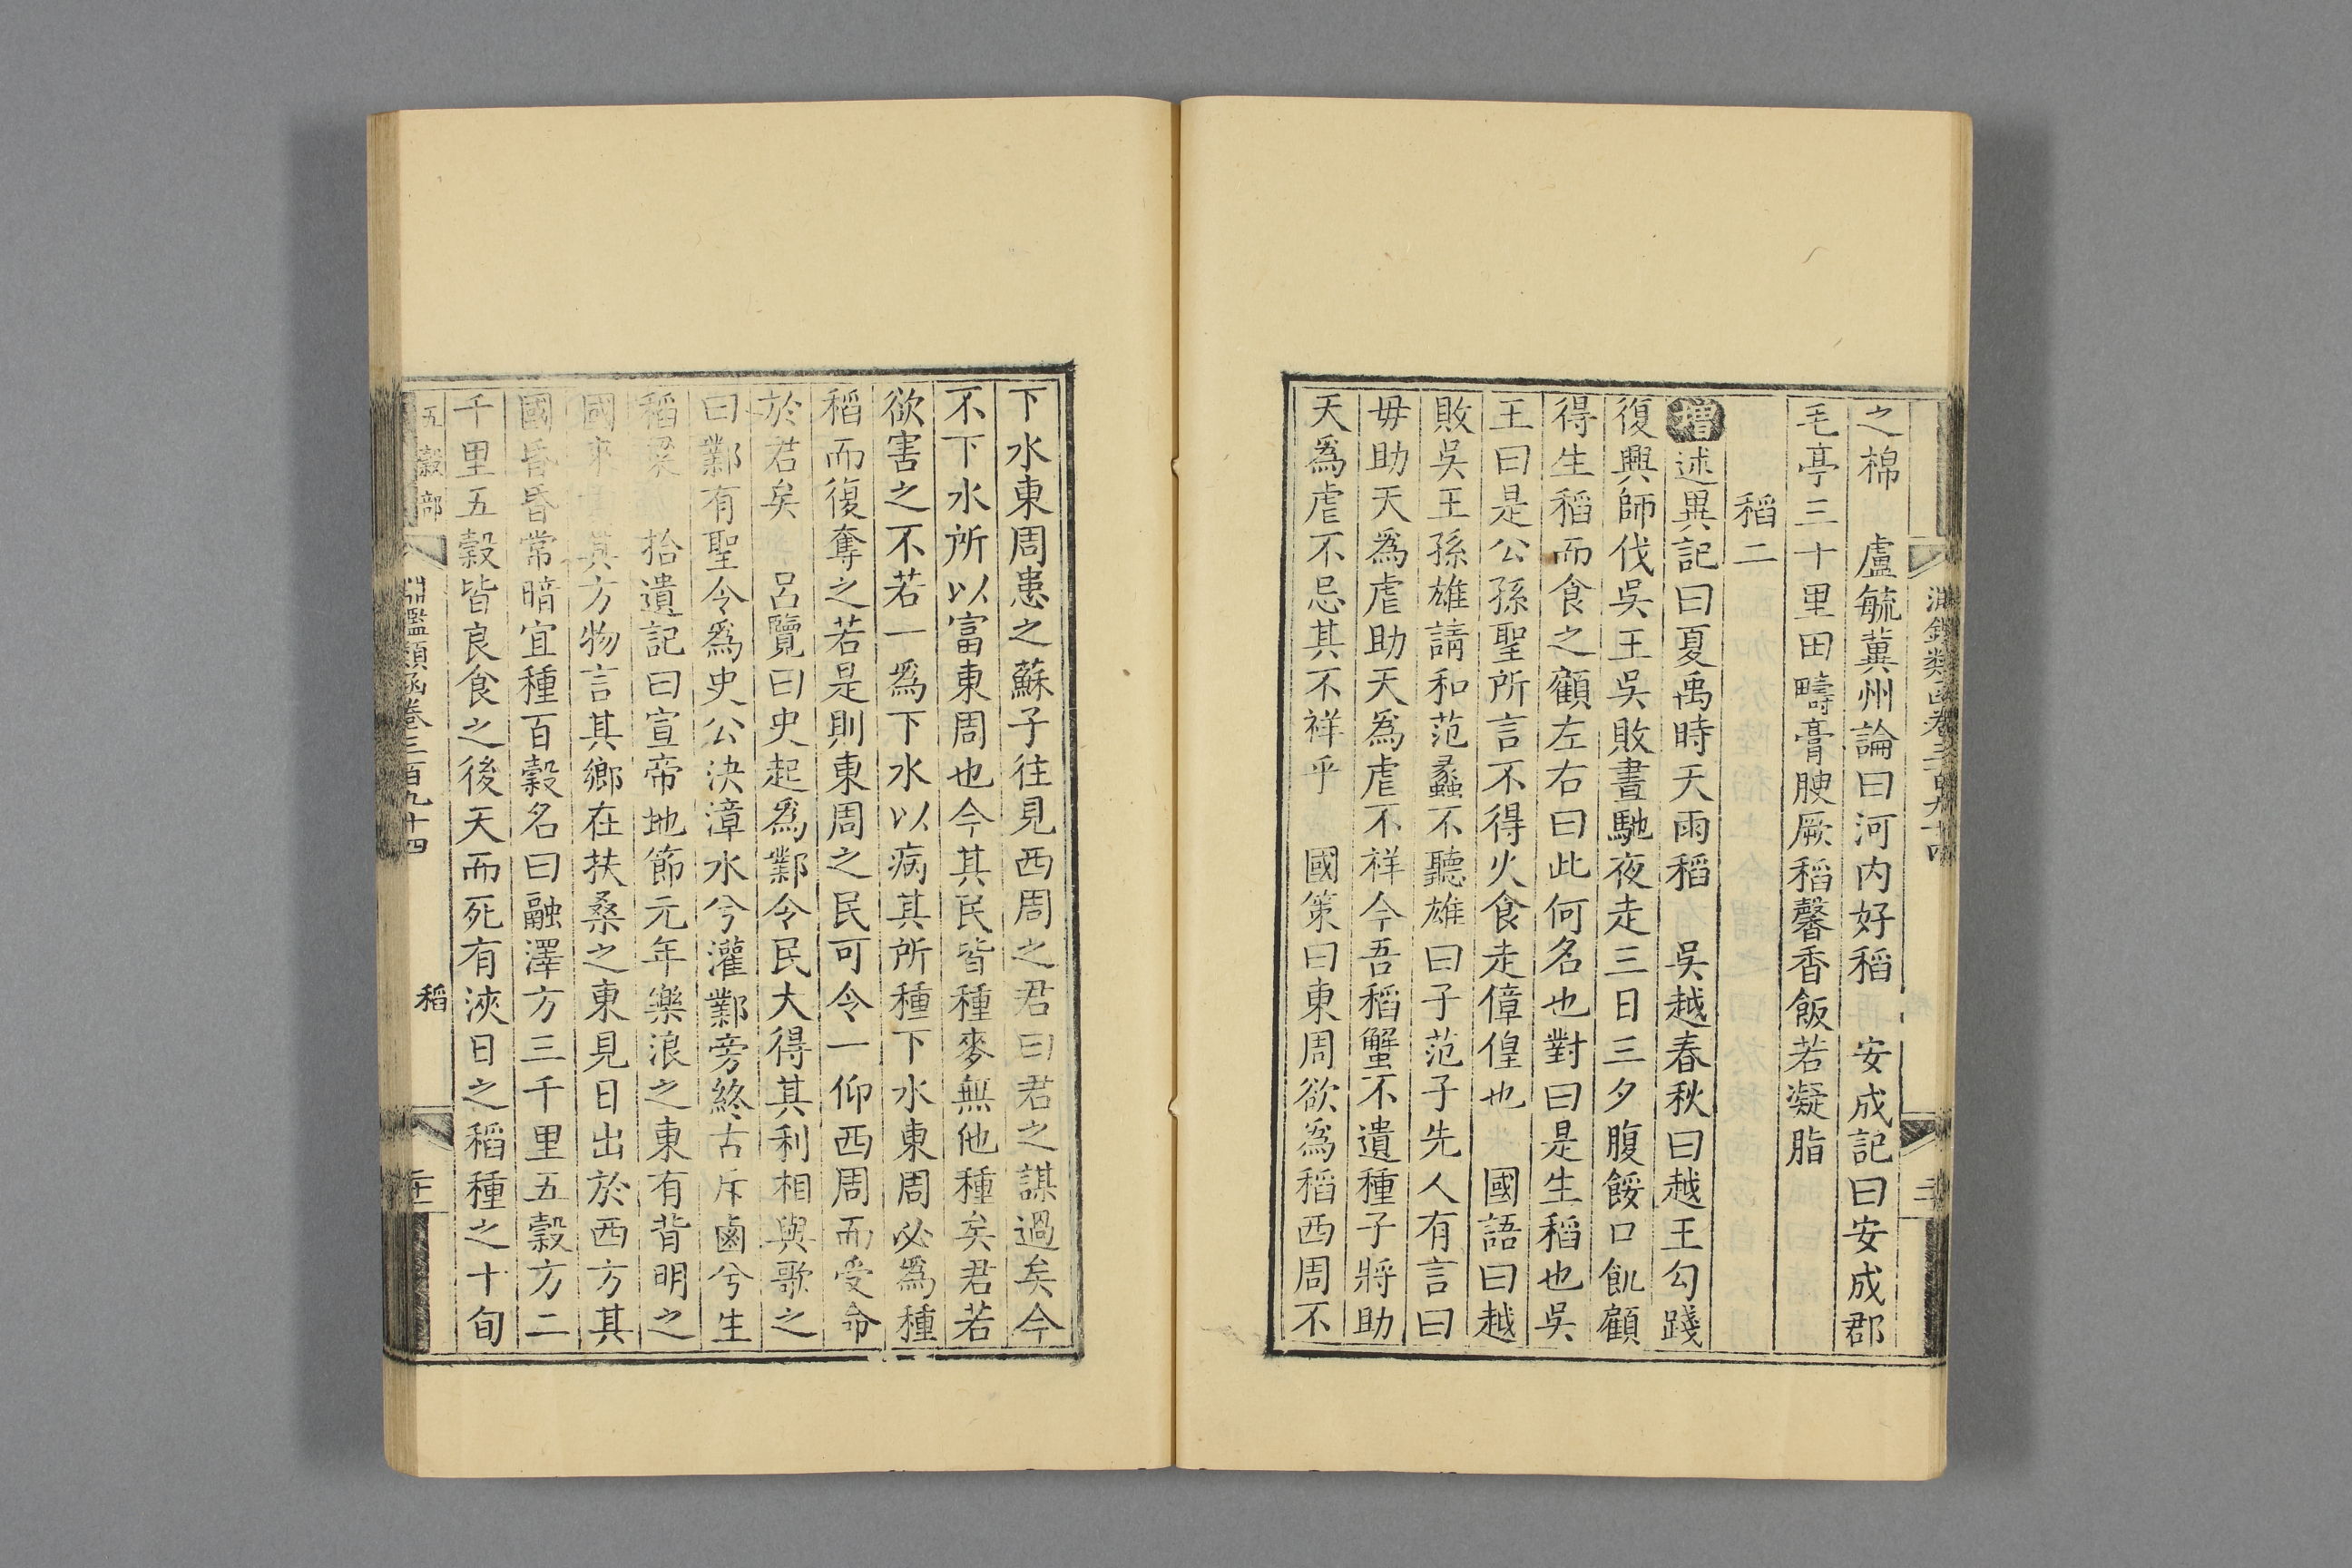 之棉　盧毓冀州論曰河内好稻　安成記曰安成郡
毛亭三十里田疇膏腴厥稻馨香飯若凝脂
稻二
增述異記曰夏禹時天雨稻　吳越春秋曰越王勾踐
復興師伐吳王吳敗晝馳夜走三日三夕腹餒口飢顧
得生稻而食之顧左右曰此何名也對曰是生稻也吳
王曰是公孫聖所言不得火食走偉偟也　國語曰越
敗吳王孫雄請和范蠡不聽雄曰子范子先人有言曰
毋助天為虐助天為虐不祥今吾稻蟹不遺種子將助
天為虐不忌其不祥乎　國策曰東周欲為稻西周不
下水東周患之蘇子往見西周之君曰君之謀過矣今
不下水所以富東周也今其民皆種麥無他種矣君若
欲害之不若一為下水以病其所種下水東周必為種
稻而復奪之若是則東周之民可令一仰西周而受命
於君矣　呂覽曰史起為鄴令民大得其利相與歌之
曰鄴有聖令為史公決漳水兮灌鄴旁終古斥鹵兮生
稻粱　拾遺記曰宣帝地節元年樂浪之東有背明之
國來　其方物言其鄉在扶桑之東見日出於西方其
國昏昏常暗宜種百穀名曰融澤方三千里五穀方二
千里五穀皆良食之後天而死有浹日之稻種之十旬
五穀部　淵鑑類函卷三百九十四　稻